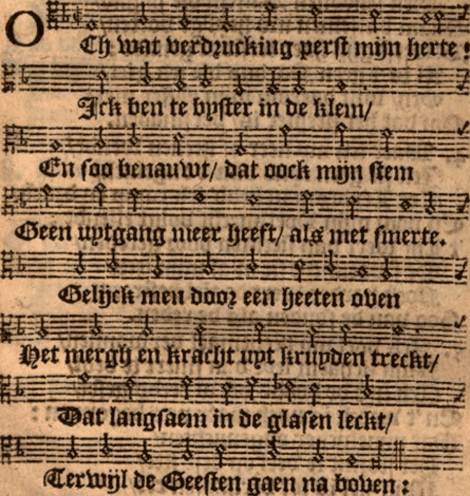 OCh wat verdrucking perst mijn herte:
Ick ben te byster in de klem/
En soo benauwt/ dat oock mijn stem
Geen uytgang meer heeft/ als met smerte.
Gelijck men door een heeten oven
Het mergh en kracht uyt kruyden treckt/
Dat langsaem in de glasen leckt/
Terwijl de Geesten gaen na boven: